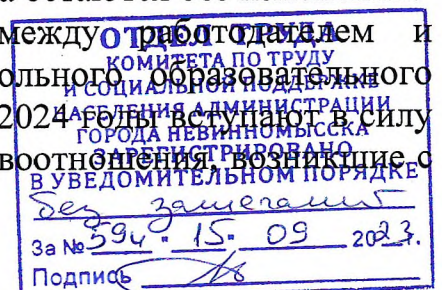 между работодателем и
ольного образовательного
2024 годы вступают в силу
воотношения, возникшие с
ОТДЕЛ ТРУДА
КОМИТЕТА ПО ТРУДУ
И СОЦИАЛЬНОЙ ПОДДЕРЖКЕ
НАСЕЛЕНИЯ АДМИНИСТРАЦИИ
ГОРОДА НЕВИННОМЫССКА
ЗАРЕГИСТРИРОВАНО
В УВЕДОМИТЕЛЬНОМ ПОРЯДКЕ
без замечаний
За № 594 "15" 09 2023 г.
Подпись